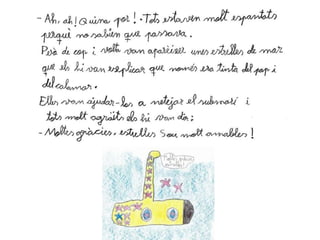 - Ah, ah! Quina por! - Tots estaven molt espantats
perquè no sabien que passava.
Però de cop i volta van aparèixer unes estrelles de mar
que els hi van explicar que només era tinta del pop i
del calamar.
Elles van ajudar-los a netejar el submarí i
tots molt agraïts els hi van dir:
- Moltes gràcies, estrelles sou molt amables!